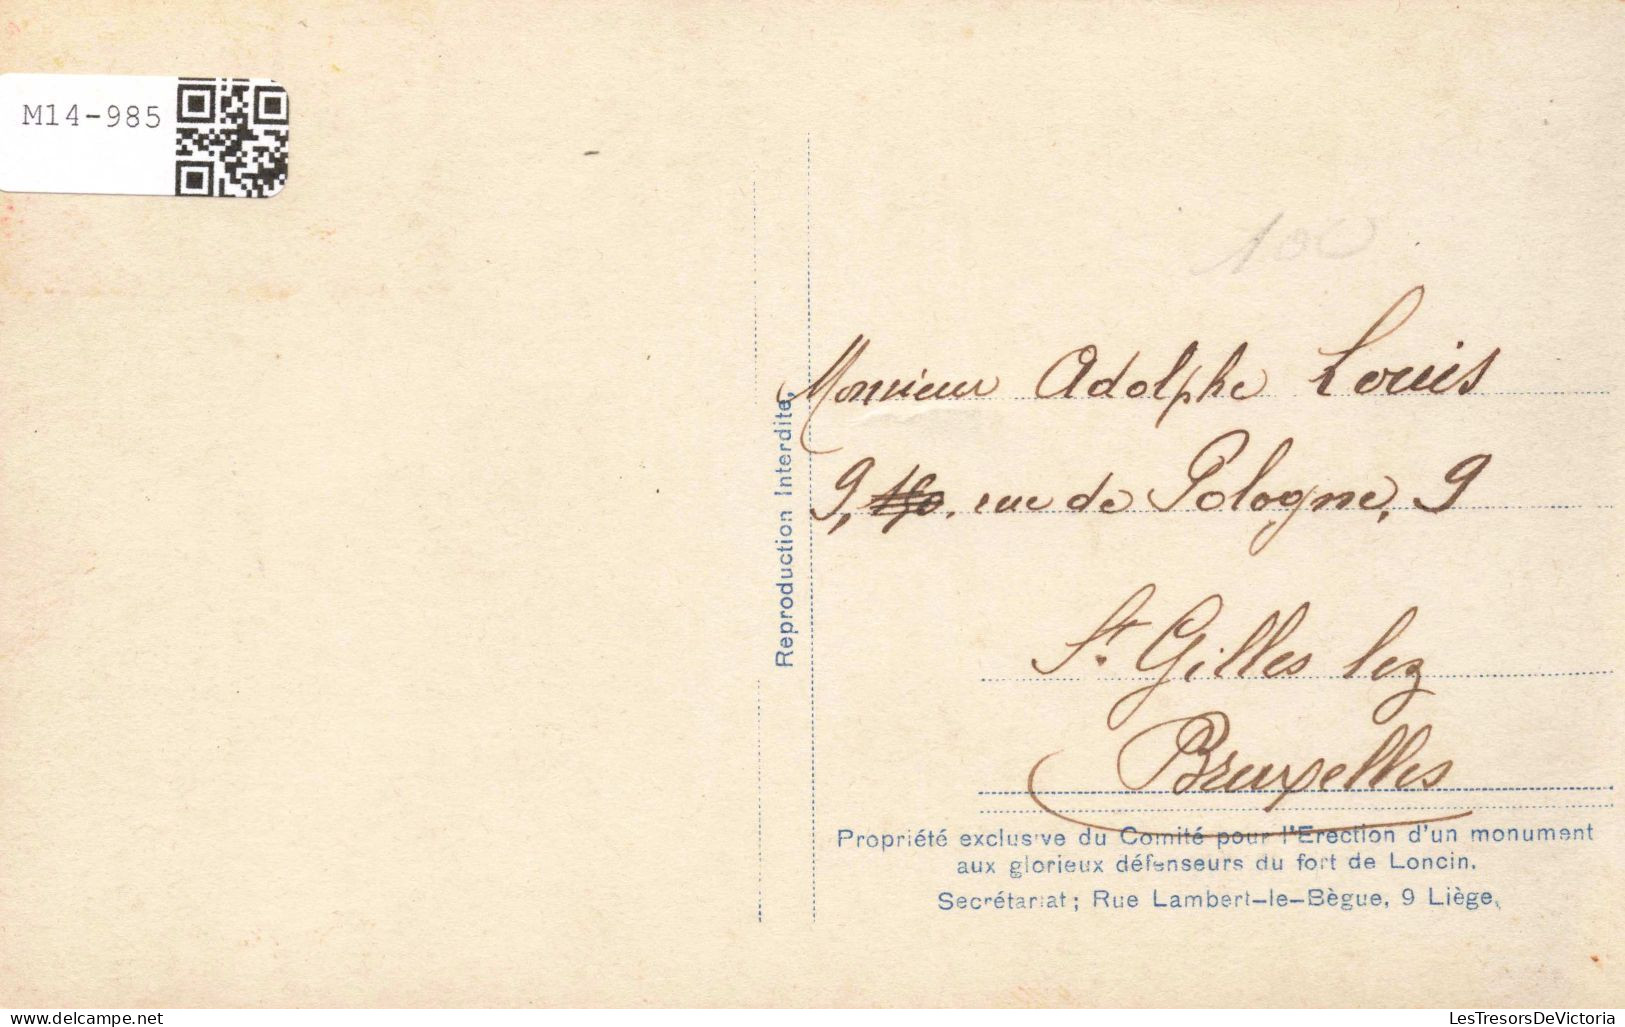 M14-985
100
Reproduction Interdite,
Monsieur Adolphe Louis
9, rue de Pologne, 9
St. Gilles lez
Bruxelles
Propriété exclusive du Comité pour l'Erection d'un monument
aux glorieux défenseurs du fort de Loncin.
Secrétariat; Rue Lambert-le-Bègue, 9 Liège.
LesTresorsDeVictoria
www.delcampe.net